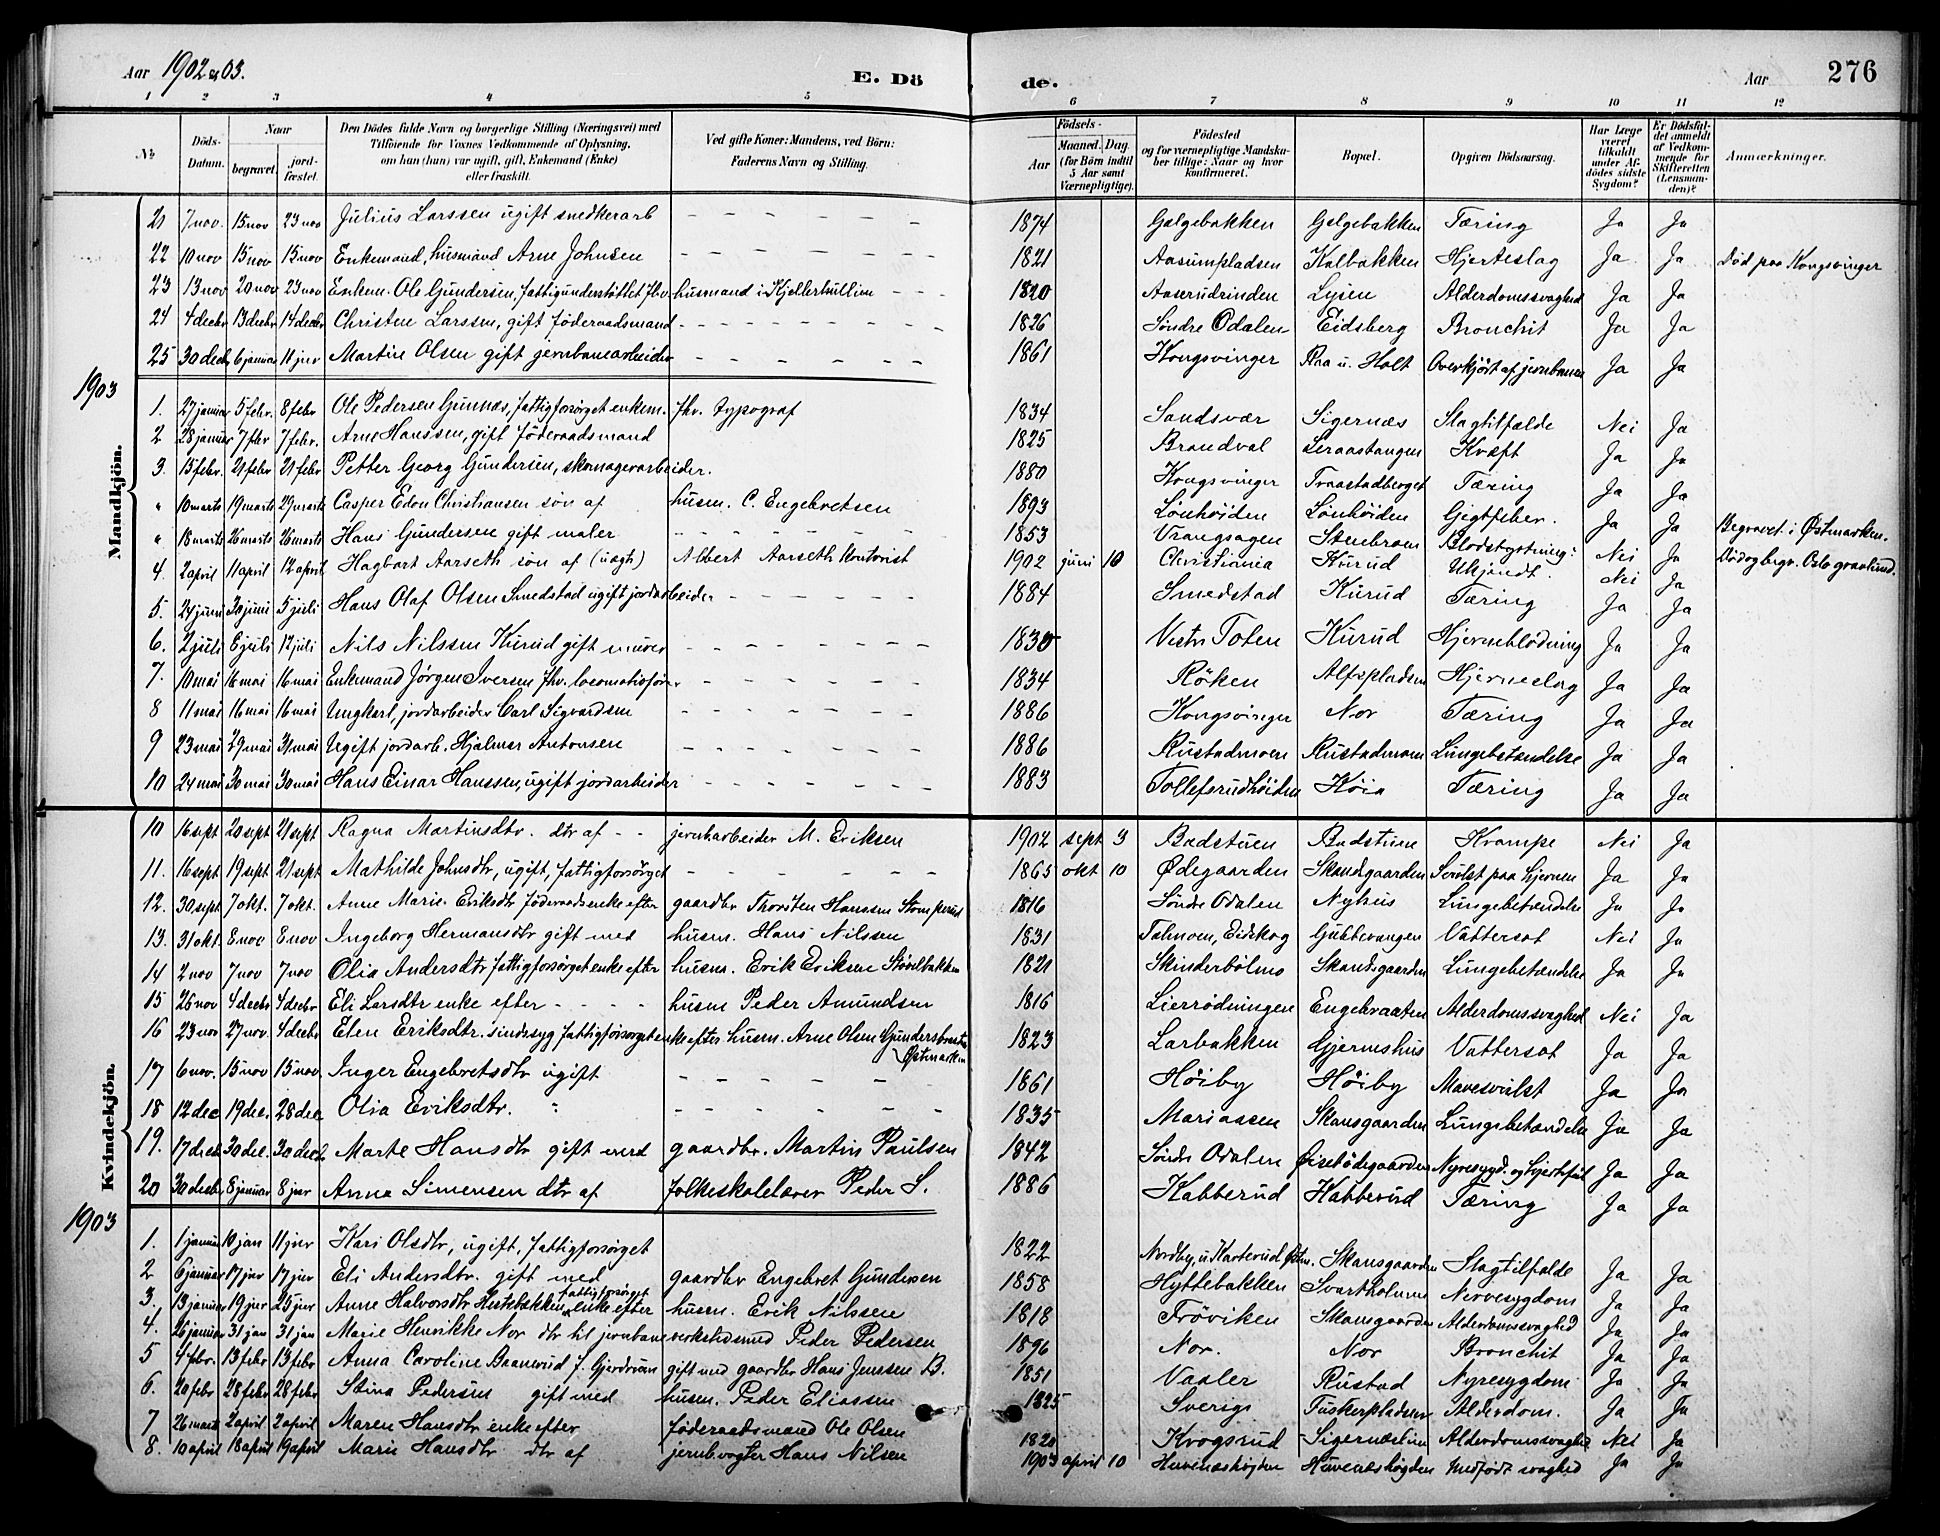 Aar 1902 & 03. E. Dö de. Aar 276
1 2 3 4 5 6 7 8 9 10 11 12
No Döds-Datum. Naar begravet. jord-fæstet. Den Dödes fulde Navn og borgerlige Stilling (Næringsvei) med Tilföiende for Voxnes Vedkommende af Oplysning, om han (hun) var ugift, gift, Enkemand (Enke) eller fraskilt. Ved gifte Koner: Mandens, ved Börn: Faderens Navn og Stilling. Födsels- Aar Maaned. Dag. (for Börn indtil 5 Aar samt Værnepligtige). Födested og for værnepligtige Mandskaber tillige: Naar og hvor konfirmeret. Bopæl. Opgiven Dödsaarsag. Har Læge været tilkaldt under Afdödes sidste Sygdom? Er Dödsfaldet anmeldt af Vedkommende for Skifteretten (Lensmanden)? Anmærkninger.
Mandkjön.
21 7 nov. 15 nov 23 nov Julius Larssen ugift snedkerarb 1874 Galgebakken Galgebakken Tæring Ja Ja
22 10 nov 15 nov 15 nov Enkemand, husmand Arne Johnsen 1821 Aasumpladsen Kalbakken Hjerteslag Ja Ja Död paa Kongsvinger
23 13 nov 20 nov 23 nov Enkem. Ole Gundersen, fattigunderstöttet fhv. husmand i Kjellerhullim 1820 Aaserudrinden Lysen Alderdomssvaghed Ja Ja
24 4 decbr 13 decbr 14 decbr Christen Larssen, gift föderaadsmand 1826 Söndre Odalen Eidsberg Bronchit Ja Ja
25 30 decb 6 januar 11 jnr Martin Olsen gift jernbanearbeider 1861 Kongsvinger Raa u. Holt Overkjört af jernbanen Ja Ja
1903
1. 27 januar 5 febr. 8 febr Ole Pedersen Gunnæs, fattigforsörget enkem. fhv. typograf 1834 Sandsvær Sigernæs Slagtilfælde Nei Ja
2 28 januar 7 febr 7 febr. Arne Hanssen, gift föderaadsmand 1825 Brandval Leraastangen Kræft Ja Ja
3. 15 febr. 21 febr 21 febr Petter Georg Gundersen, skomagerarbeider. 1880 Kongsvinger Traastadberget Tæring Ja Ja
" 10 marts 19 marts 29 marts Casper Edon Christiansen sön af husm. C. Engebretsen 1893 Lönhöiden Lönhöiden Gigtfeber. Ja Ja
" 18 marts 26 marts 26 marts Hans Gundersen gift maler 1853 Vrangsagen Stenbroen Blodstyrtning: Nei Ja Begravet i Østmarken.
4. 2 april 11 april 12 april Hagbart Aarseth sön af (uægt) Albert Aarseth kontorist 1902 juni 10 Christiania Kurud Ukjendt. Nei Ja Död og begr. Oslo gravlund.
5. 24 juni 30 juni 5 juli Hans Olaf Olsen Smedstad ugift jordarbeider 1884 Smedstad Kurud Tæring Ja Ja
6. 2 juli 6 juli 12 juli Nils Nilssen Kurud gift murer 1830 Vestr Toten Kurud Hjerneblödning Ja Ja
7. 10 mai 16 mai 16 mai Enkemand Jörgen Iversen fhv. locomotivförer 1834 Röken Alfspladsen Hjerneslag Ja Ja
8 11 mai 16 mai 16 mai Ungkarl, jordarbeider Carl Sigvardsen 1886 Kongsvinger Nor Tæring Ja Ja
9 23 mai 29 mai 31 mai Ugift jordarb. Hjalmar Antonsen 1886 Rustadmoen Rustadmoen Lungebetændelse Ja Ja
10 24 mai 30 mai 30 mai Hans Einar Hanssen, ugift jordarbeider 1883 Tollefsrudhöiden Köia Tæring Ja Ja
Kvindekjön.
10 16 sept 20 sept 21 sept Ragna Martinsdtr. dtr af jernbarbeider M. Eriksen 1902 sept 3 Badstuen Badstuen Krampe Nei Ja
11. 16 sept 19 sept 21 sept Mathilde Johnsdtr, ugift, fattigforsörget 1865 okt 10 Ødegaarden Skandsgaarden Svulst paa hjernen Ja Ja
12. 30 sept 7 okt. 7 okt. Anne Marie Eriksdtr föderaadsenke efter gaardbr Thorsten Hanssen Stomperud 1816 Söndre Odalen Nyhus Lungebetændelse Ja Ja
13. 31 okt. 8 nov 8 nov Ingeborg Hermansdtr gift med husm. Hans Nilssen 1831 Talmoen, Eidskog Gubbevangen Vattersot Nei Ja
14 2 nov 7 nov 7 nov Olia Andersdtr fattigforsörget enke efter husm. Erik Eriksen Stövelbakken 1821 Skinderbölmo Skandsgaarden Lungebetændelse Ja Ja
15 26 nov 4 decbr 4 decbr Eli Larsdtr enke efter husm Peder Amundsen 1816 Lierrödningen Engebraaten Alderdomssvaghed Nei Ja
16 23 nov 27 nov. 4 decbr Elen Eriksdtr. sindssyg fattigforsörget enke efter husm. Arne Olsen Gundersbraaten Østmarken 1823 Larbakken Gjerneshus Vattersot Ja Ja
17 6 nov. 15 nov 15 nov Inger Engebretsdtr ugift 1861 Höiby Höiby Mavesvulst Ja Ja
18 12 dec 19 dec. 28 dec Olia Eriksdtr. " 1835 Mariassen Skansgaarden Lungebetændelse Ja Ja
19. 17 decb 30 dec. 30 decb Marte Hansdtr gift med gaardbr. Martin Paulsen 1842 Söndr Odalen Øisebödegaarden Nyresygd. og hjertefeil Ja Ja
20 30 decbr 8 januar 8 jnr Anna Simensen dtr af folkeskolelærer Peder S. 1886 Kabberud Kabberud Tæring Ja Ja
1903
1. 1 januar 10 jan 11 jnr Kari Olsdtr, ugift, fattigforsörget 1822 Nordby, u. Karterud Østm. Skansgaarden Slagtilfælde Ja Ja
2 6 januar 17 jnr 17 jnr Eli Andersdtr. gift med gaardbr Engebret Gundersen 1858 Hyttebakken Svartholmen Nervesygdom Ja Ja
3. 13 januar 19 jnr 25 jnr Anne Halvorsdtr Hestebækken fattigforsörget enke efter husm. Erik Nilssen 1818 Fröviken Skansgaarden Alderdomssvaghed Ja Ja
4. 26 januar 31 jan 31 jan Marie Henrikke Nor dtr til jernbaneverkstedsmd Peder Pedersen 1896 Nor. Nor Bronchit Ja Ja
5 4 febr. 13 febr 13 febr Anna Caroline Baanerud f. Gjerdrum gift med gaardbr Hans Jenssen B. 1851 Vaaler Rustad Nyresygdom Ja Ja
6. 20 febr 28 febr 28 febr Stina Pedersen gift med husm. Peder Eliassen 1825 Sverige Tuskerpladsen Alderdom. Ja Ja
7 26 marts 2 april 2 april Maren Hansdtr enke efter föderaadsmand Ole Olsen 1820 Krogsrud Sigernæslien Alderdomssvaghed Nei Ja
8. 10 april 18 april 19 april Marie Hansdtr dtr af jernb.vogter Hans Nilsen 1903 april 10 Huvenæshögden Huvenæshögden Medfödt svaghed Ja Ja